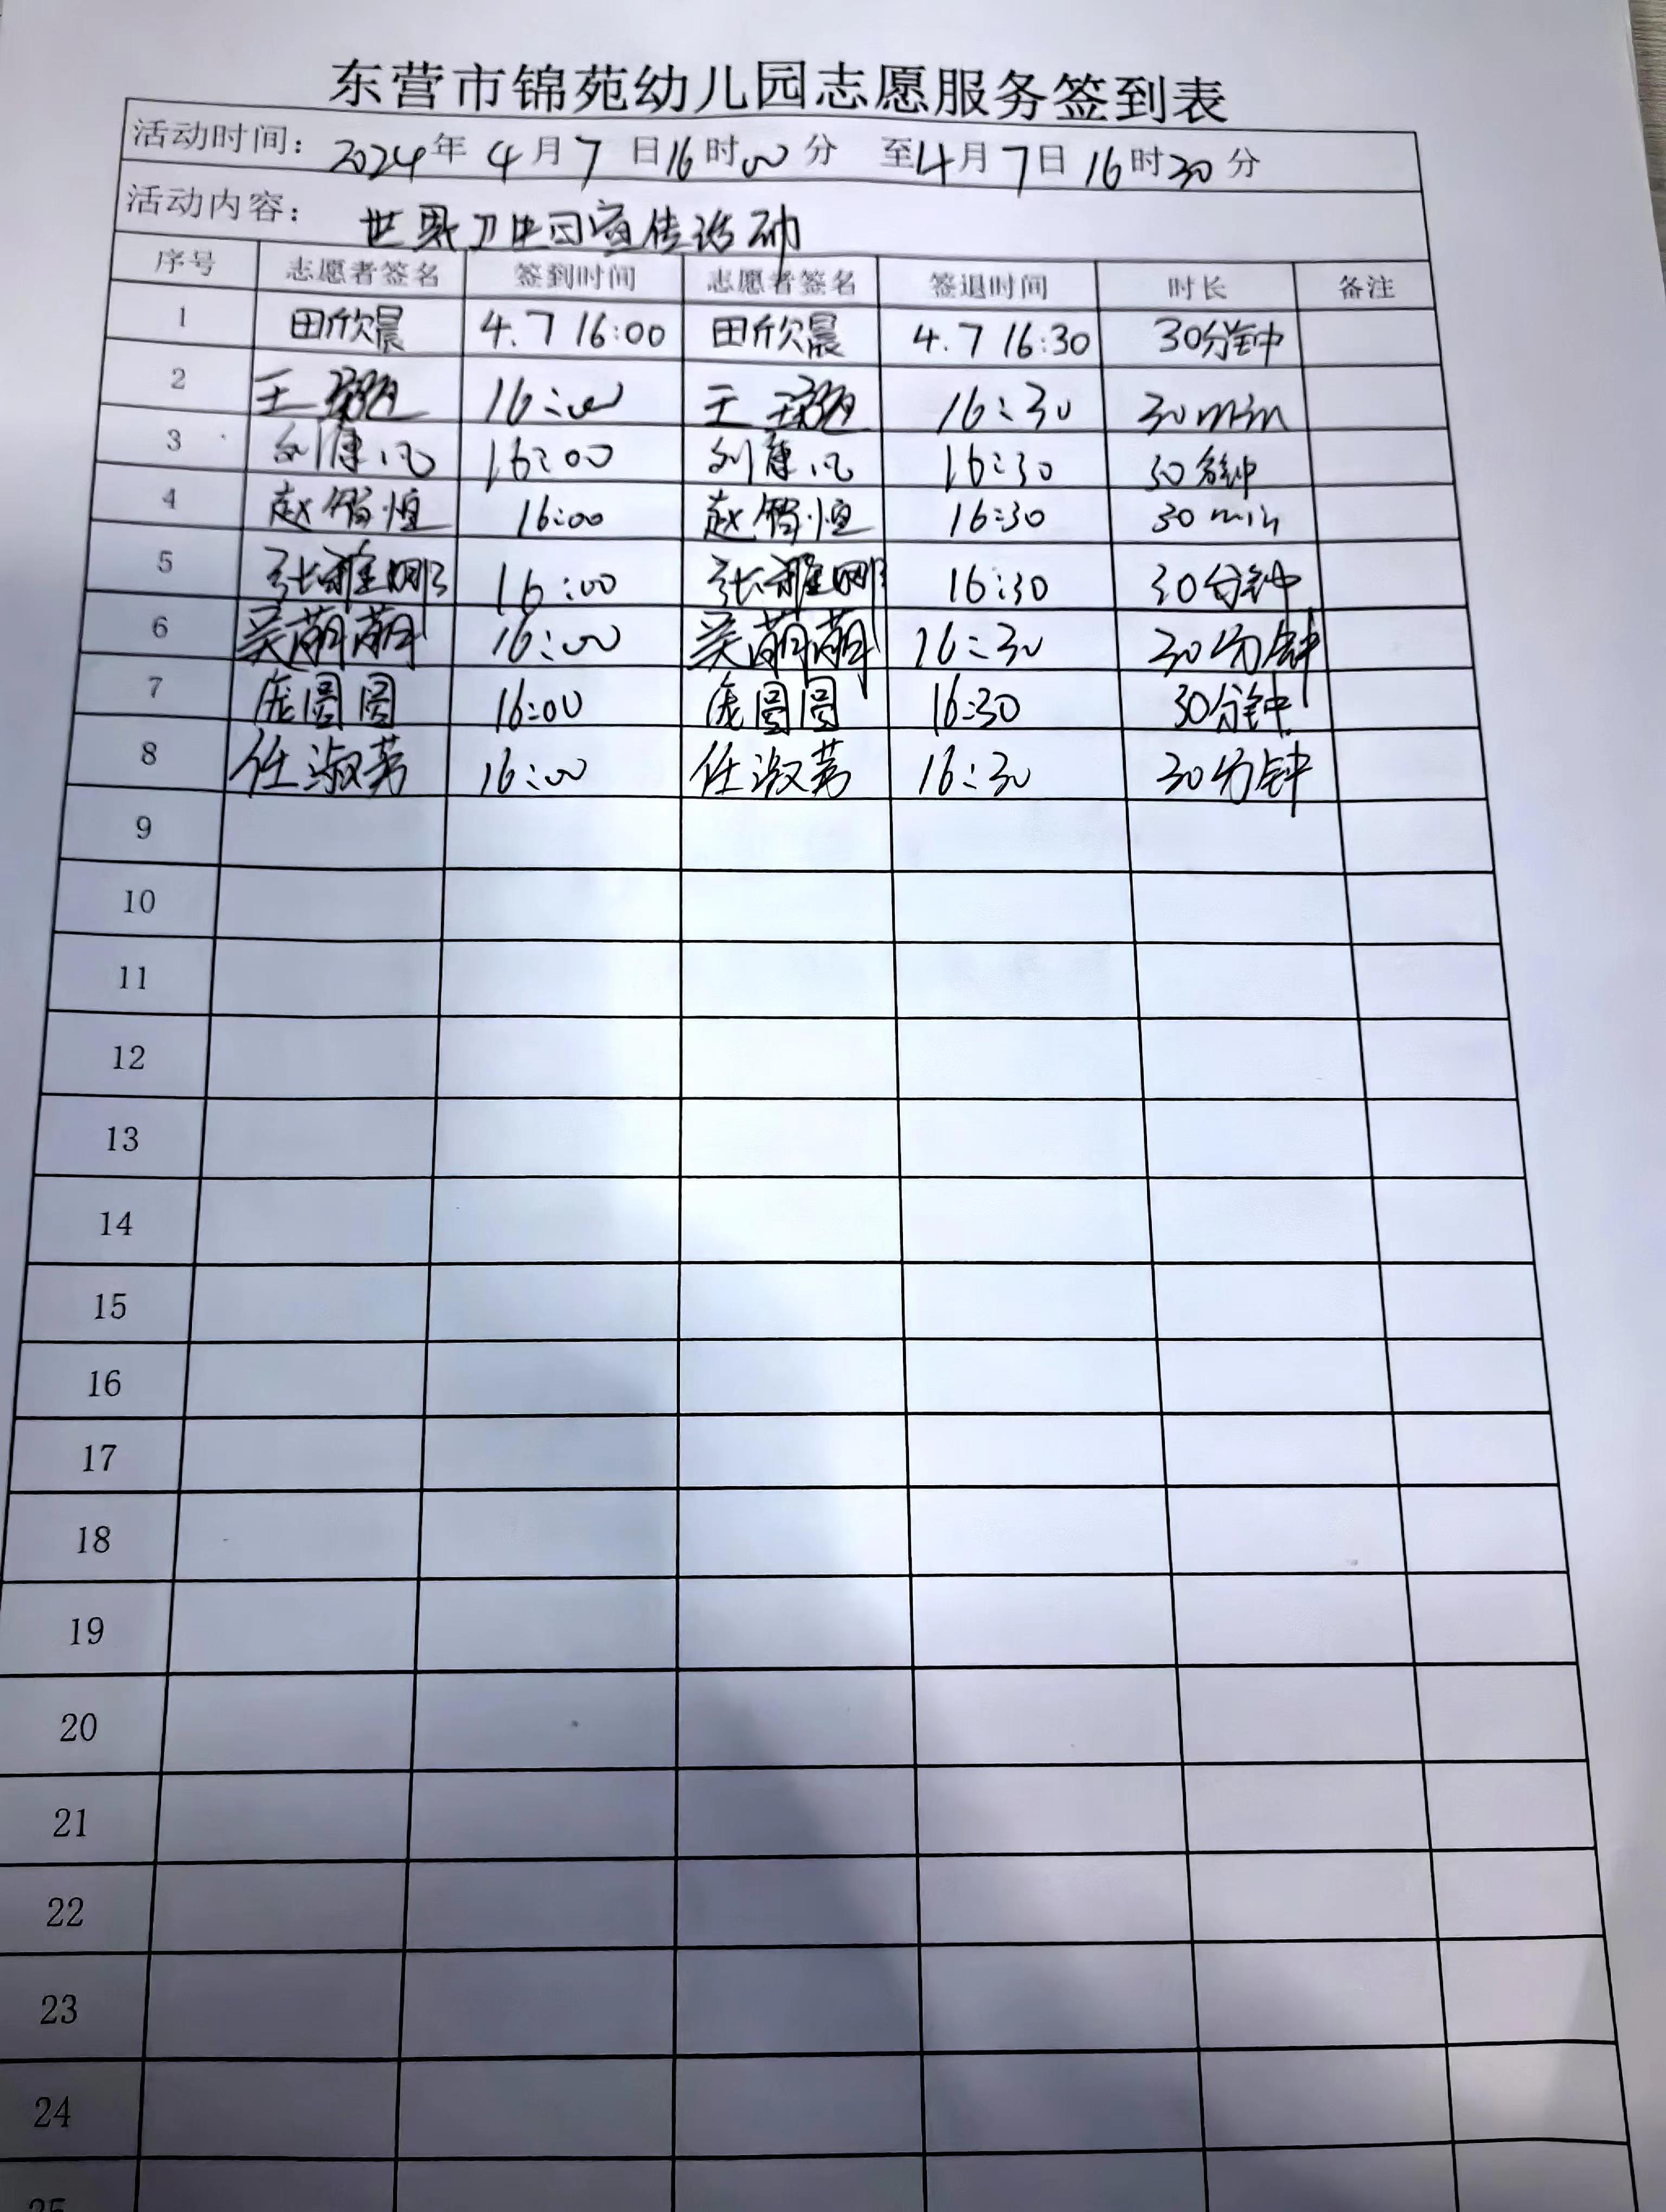 东营市锦苑幼儿园志愿服务签到表
活动时间：2024年4月7日16时00分 至4月7日16时30分
活动内容：世界卫生日宣传活动
序号 志愿者签名 签到时间 志愿者签名 签退时间 时长 备注
1 田欣晨 4.7 16:00 田欣晨 4.7 16:30 30分钟
2 王 16:00 王 16:30 30min
3 刘 16:00 刘 16:30 30分钟
4 赵 恒 16:00 赵 恒 16:30 30min
5 张雅娜 16:00 张雅娜 16:30 30分钟
6 吴萌萌 16:00 吴萌萌 16:30 30分钟
7 庞圆圆 16:00 庞圆圆 16:30 30分钟
8 任淑 16:00 任淑 16:30 30分钟
9
10
11
12
13
14
15
16
17
18
19
20
21
22
23
24
25